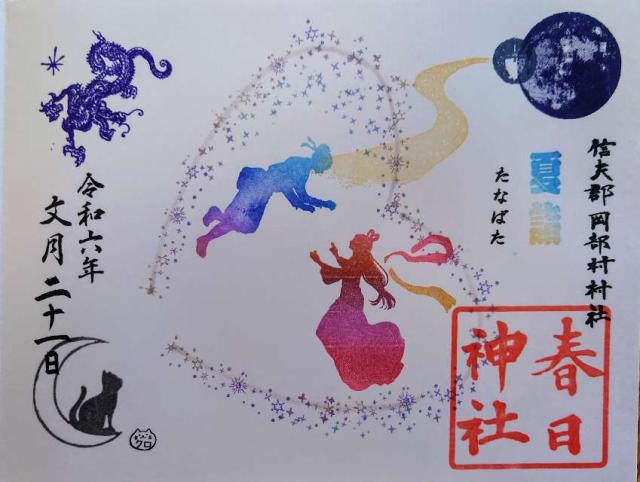 信夫郡岡部村村社
夏詣
たなばた
春日
神社
令和六年
文月二十一日
クロ